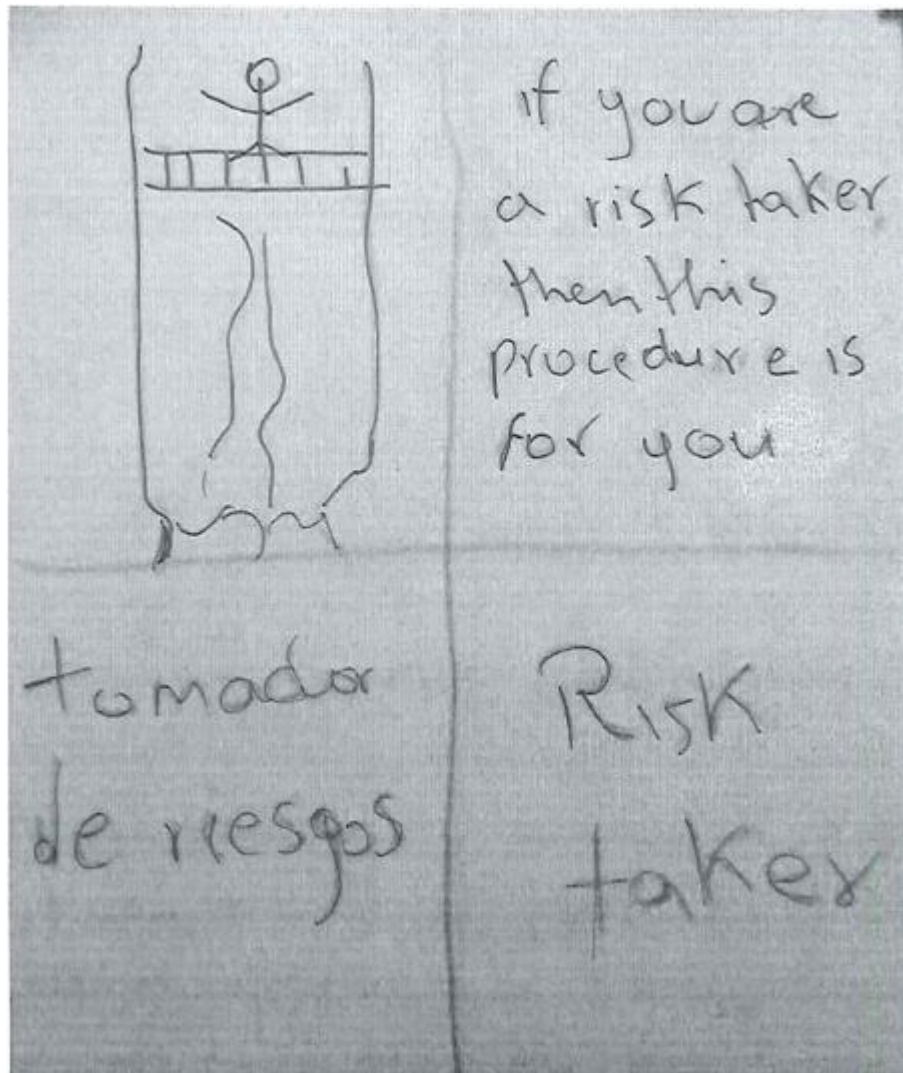 if you are
a risk taker
then this
procedure is
for you
tomador
de riesgos
Risk
taker